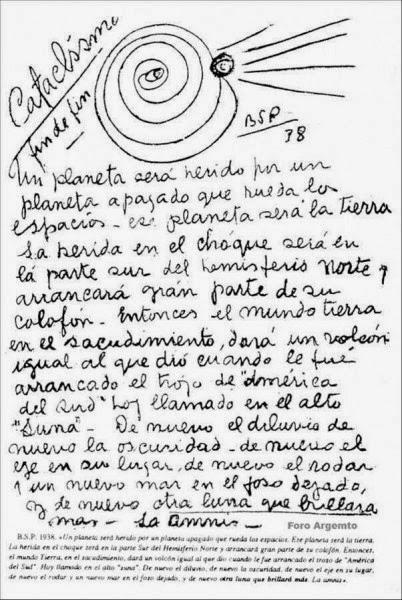 Cataclismo
fin de fin
BSP.
38
Un planeta será herido por un
planeta apagado que rueda los
espacios - ese planeta será la tierra
La herida en el choque será en
la parte sur del hemisferio norte y
arrancará gran parte de su
colofón - Entonces el mundo tierra
en el sacudimiento, dará un volcón
igual al que dió cuando le fué
arrancado el trozo de "América
del sud" hoy llamado en el alto
"Suna" - De nuevo el diluvio de
nuevo la oscuridad - de nuevo el
eje en su lugar, de nuevo el rodar
y un nuevo mar en el foso dejado,
y de nuevo otra luna que brillara
mas - La amnis -
Foro Argemto
B.S.P. 1938. «Un planeta será herido por un planeta apagado que rueda los espacios. Ese planeta será la tierra.
La herida en el choque será en la parte Sur del Hemisferio Norte y arrancará gran parte de su colofón. Entonces,
el mundo Tierra, en el sacudimiento, dará un volcón igual al que dio cuando le fue arrancado el trozo de "América
del Sud". Hoy llamado en el alto "suna". De nuevo el diluvio, de nuevo la oscuridad, de nuevo el eje en su lugar,
de nuevo el rodar y un nuevo mar en el foso dejado, y de nuevo otra luna que brillará más. La amnis».